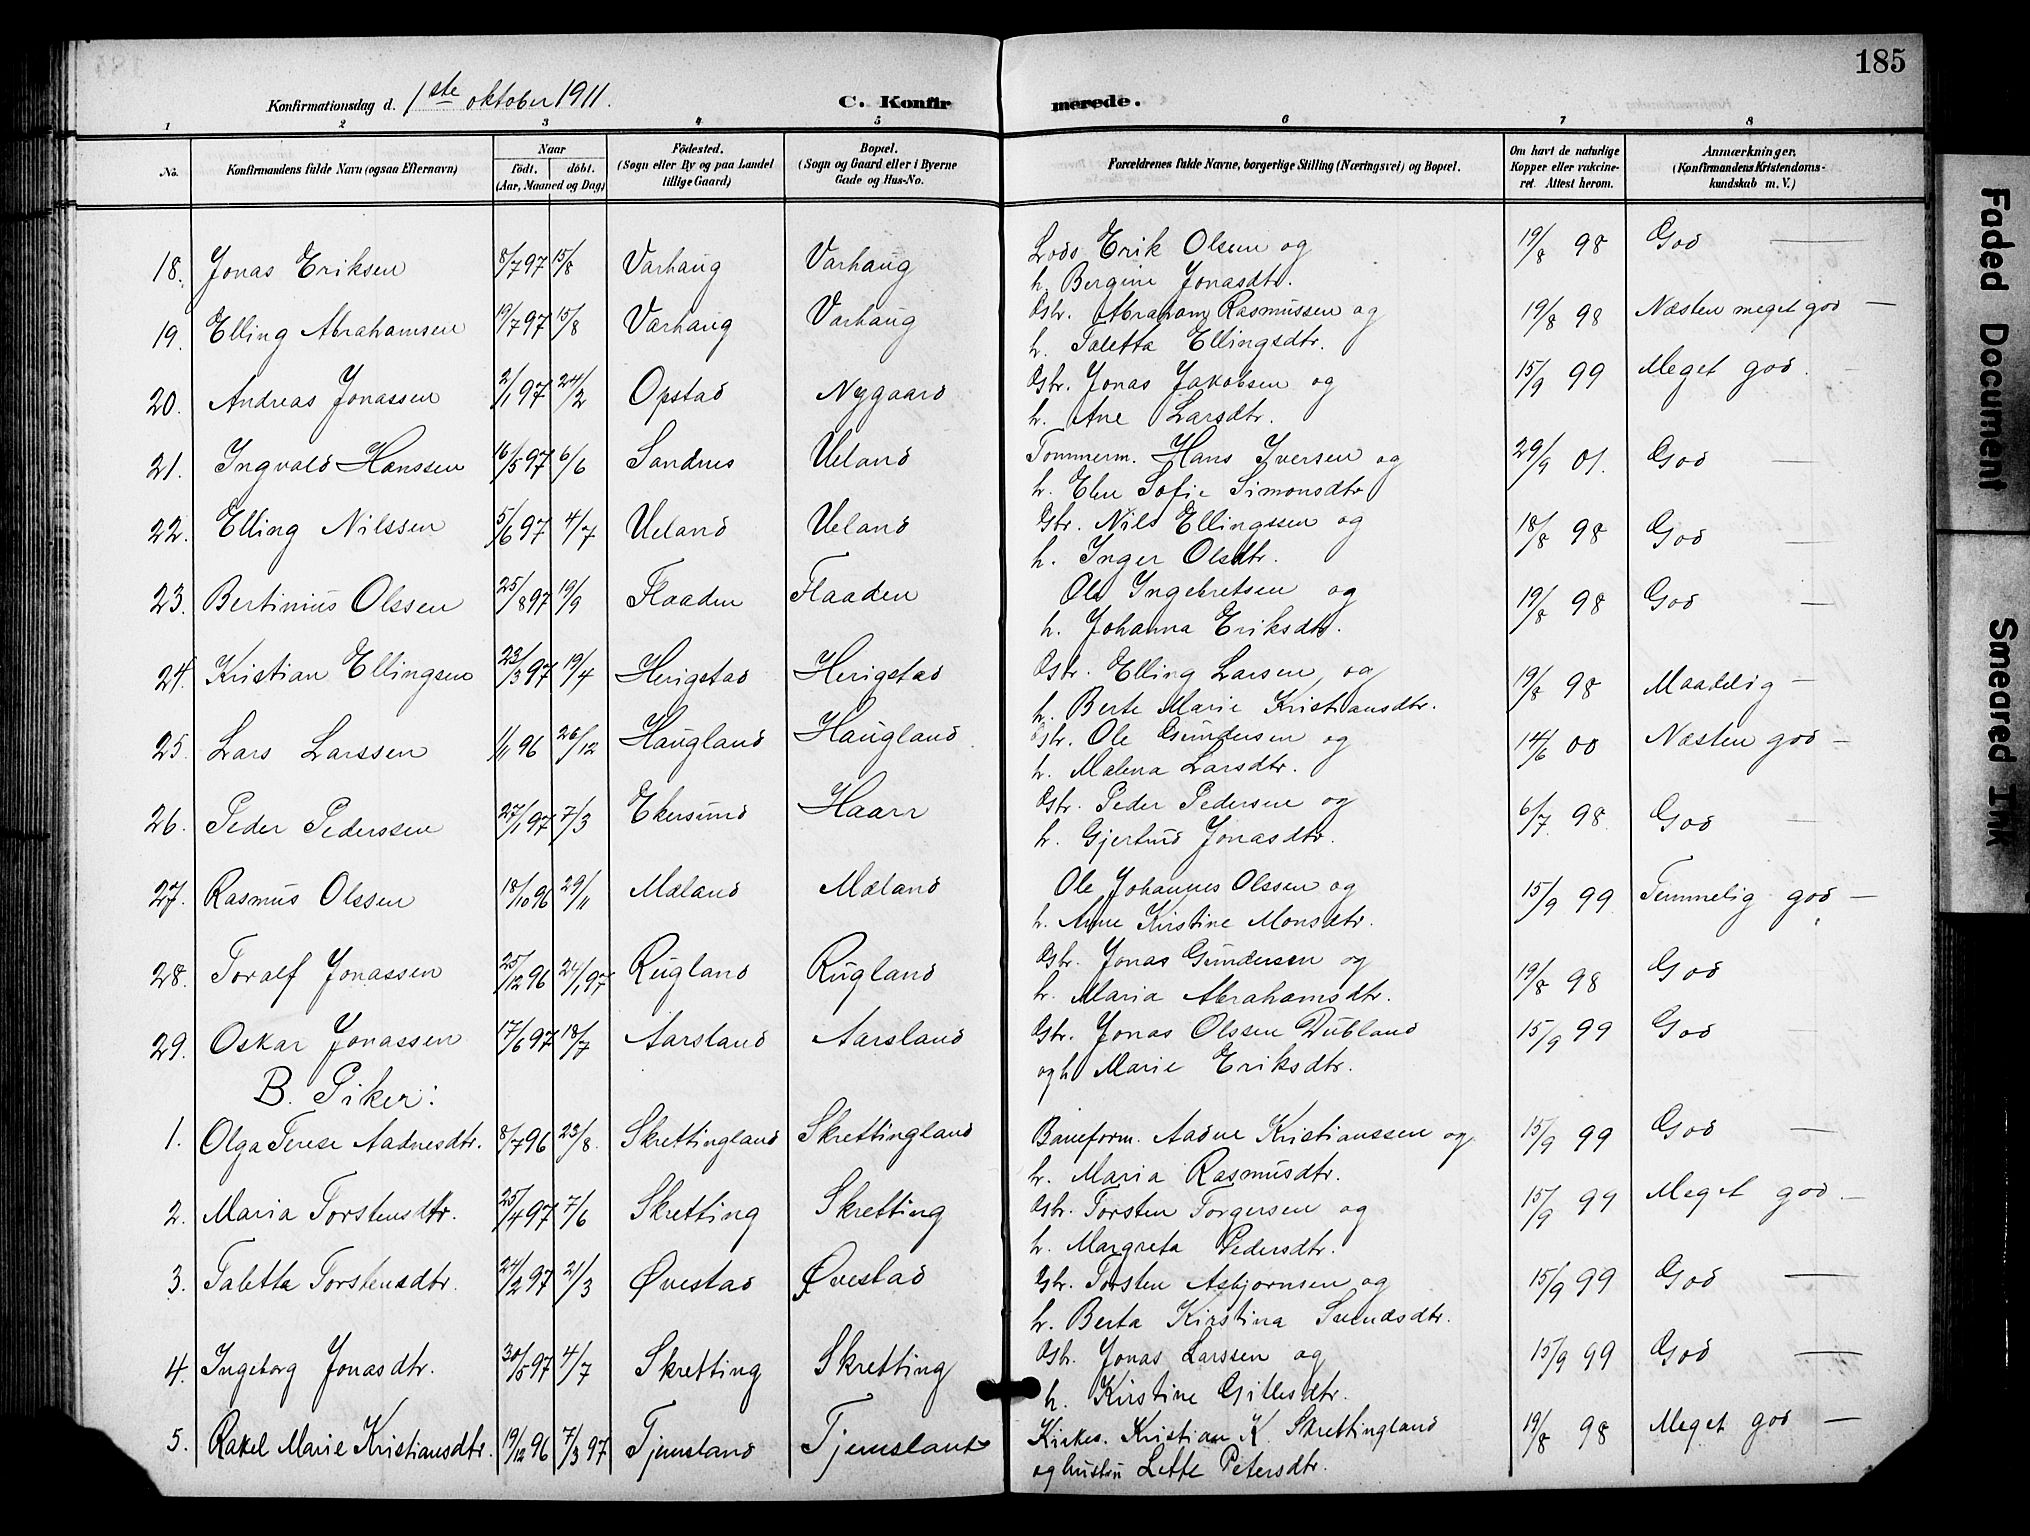 185
Konfirmationsdag d. 1ste oktober 1911. C. Konfirmerede.
1 2 3 4 5 6 7 8
No. Konfirmandens fulde Navn (ogsaa Efternavn) Naar født. døbt. (Aar, Maaned og Dag) Fødested. (Sogn eller By og paa Landet tillige Gaard) Bopæl. (Sogn og Gaard eller i Byerne Gade og Hus-No. Forældrenes fulde Navne, borgerlige Stilling (Næringsvei) og Bopæl. Om havt de naturlige Kopper eller vakcineret. Attest herom. Anmærkninger. (Konfirmandens Kristendomskundskab m. V.)
18. Jonas Eriksen 8/7 97 15/8 Varhaug Varhaug Lods Erik Olsen og 19/8 98 God —
h. Bergine Jonasdtr.
19. Elling Abrahamsen 19/7 97 15/8 Varhaug Varhaug Gbr. Abraham Rasmussen og 19/8 98 Næsten meget god —
h. Taletta Ellingsdtr.
20. Andreas Jonassen 2/1 97 24/2 Opstad Nygaard Gbr. Jonas Jakobsen og 15/9 99 Meget god.
h. Ane Larsdtr.
21. Ingvald Hanssen 16/5 97 6/6 Sandnes Ueland Tommerm. Hans Iversen og 29/9 01. God —
h. Elen Sofie Simonsdtr
22. Elling Nilssen 5/6 97 4/7 Ueland Ueland Gbr. Nils Ellingssen og 18/8 98 God —
h. Inger Olsdtr.
23. Bertinius Olssen 25/8 97 19/9 Flaaden Flaaden Ole Ingebretsen og 19/8 98 God —
h. Johanna Eriksdtr.
24. Kristian Ellingsen 23/3 97 19/4 Herigstad Herigstad Gbr. Elling Larsen og 19/8 98 Maadelig —
h. Berte Marie Kristiansdtr.
25. Lars Larssen 1/1 96 26/12 Haugland Haugland Gbr. Ole Gundersen og 14/6 00 Næsten god —
h. Malena Larsdtr.
26. Peder Pederssen 27/1 97 7/3 Ekersund Haarr Gbr. Peder Pedersen og 6/7 98. God —
h. Gjertrud Jonasdtr.
27. Rasmus Olssen 18/10 96 29/11 Mæland Mæland Ole Johannes Olssen og 15/9 99 Temmelig god —
h. Anne Kirstine Monsdtr.
28. Toralf Jonassen 25/12 96 24/1 97 Rugland Rugland Gbr. Jonas Gundersen og 19/8 98 God
h. Maria Abrahamsdtr.
29. Oskar Jonassen 17/6 97 18/7 Aarsland Aarsland Gbr. Jonas Olssen Dubland 15/9 99 God —
og h Marie Eriksdtr.
B. Piker:
1. Olga Terese Aadnesdtr. 8/7 96 23/8. Skrettingland Skrettingland Baneform. Aadne Kristianssen og 15/9 99 God —
h. Maria Rasmusdtr.
2. Maria Torstensdtr. 25/4 97 7/6 Skretting Skretting Gbr. Torsten Torgersen og 15/9 99 Meget god. —
h. Margreta Pedersdtr.
3. Taletta Torstensdtr. 24/2 97 21/3 Øvestad Øvestad Gbr. Torsten Asbjørnsen og 15/9 99 God —
h. Berta Kirstina Svendsdtr.
4. Ingeborg Jonasdtr. 30/5 97 4/7 Skretting Skretting Gbr. Jonas Larssen og 15/9 99 God —
h. Kirstine Gillesdtr.
5. Rakel Marie Kristiansdtr. 19/12 96 7/3 97 Tjemsland Tjemsland Kirkes. Kristian K. Skrettingland 19/8 98 Meget god —
og hustru Lette Petersdtr.
Faded Document
Smeared Ink